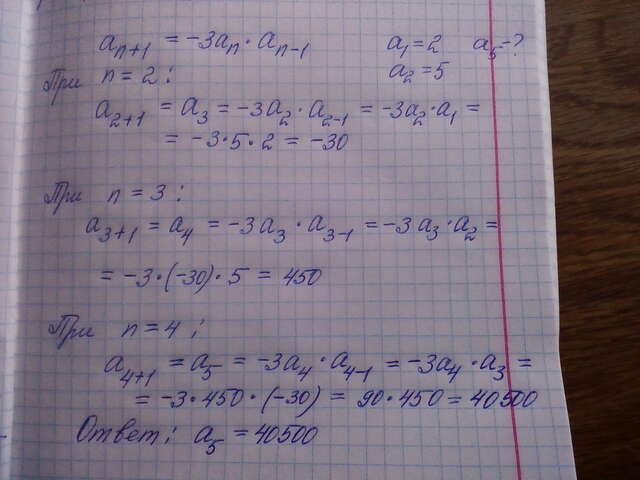 aₙ₊₁ = -3aₙ · aₙ₋₁ a₁ = 2 a₅ - ?
При n = 2 : a₂ = 5
a₂₊₁ = a₃ = -3a₂ · a₂₋₁ = -3a₂ · a₁ =
= -3 · 5 · 2 = -30
При n = 3 :
a₃₊₁ = a₄ = -3a₃ · a₃₋₁ = -3a₃ · a₂ =
= -3 · (-30) · 5 = 450
При n = 4 :
a₄₊₁ = a₅ = -3a₄ · a₄₋₁ = -3a₄ · a₃ =
= -3 · 450 · (-30) = 90 · 450 = 40500
Ответ: a₅ = 40500